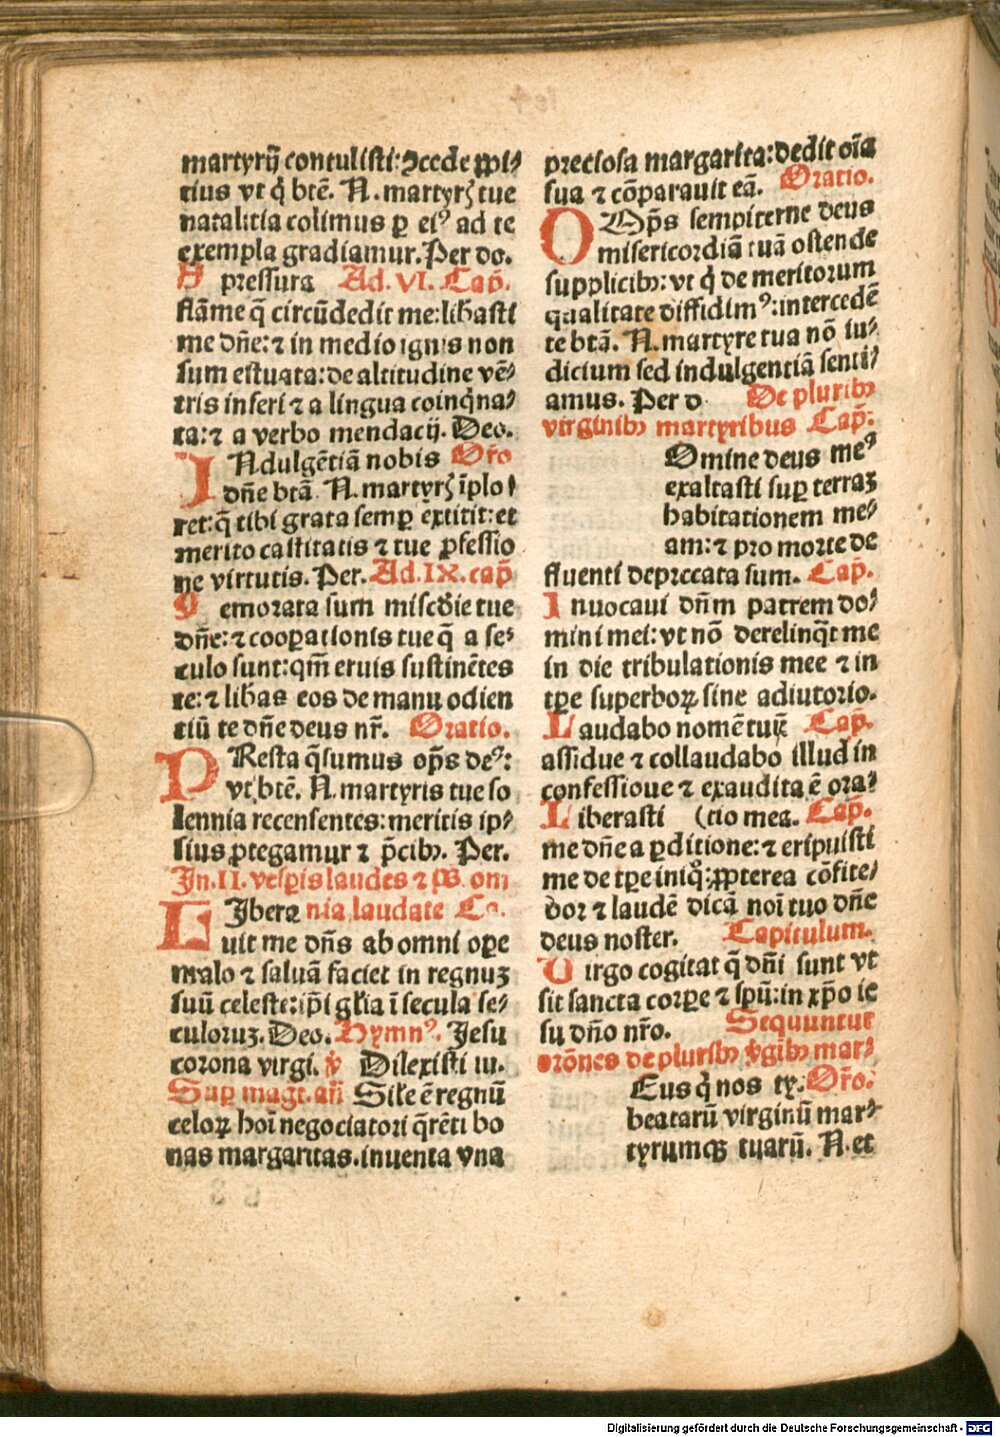 martyrÿ contulisti:ꝯcede ꝓpi⸗
tius vt q̇ btē. N. martyrꝭ tue
natalitia colimus ꝑ eiꝰ ad te
exempla gradiamur. Per do.
A pressura Ad. VI. Cap̄.
flāme q̄ circūdedit me:lib̄asti
me dn̄e:⁊ in medio ignis non
sum estuata:de altitudine vē⸗
tris inferi ⁊ a lingua coinq̇na⸗
ta:⁊ a verbo mendacij. Deo.
INdulgētiā nobis Or̄o
dn̄e btā N. martyrꝭ īplo⸗
ret:q̄ tibi grata semꝑ extitit:et
merito castitatis ⁊ tue ꝓfessio
ne virtutis. Per. Ad. IX. cap̄
Memorata sum miscd̄ie tue
dn̄e:⁊ cooꝑationis tue q̄ a se⸗
culo sunt:qm̄ eruis sustinētes
te:⁊ lib̄as eos de manu odien
tiū te dn̄e deus nr̄. Oratio.
PResta q̄sumus op̄s deꝰ:
vt btē. N. martyris tue so
lennia recensentes:meritis ip⸗
sius ꝓtegamur ⁊ p̄cibꝫ. Per.
In. II. vesꝑis laudes ⁊ ps. om
LIbera nia laudate Ca.
uit me dn̄s ab omni oꝑe
malo ⁊ saluā faciet in regnuꝫ
suū celeste:ip̄i gl̄ia ī secula se⸗
culoruꝫ. Deo. Hymnꝰ. Jesu
corona virgi. ℣ Dilexisti iu.
Suꝑ magt. an̄ Sil̄e ē regnū
celoꝝ hoi̅ negociatori q̄rēti bo
nas margaritas. inuenta vna
preciosa margarita:dedit oīa
sua ⁊ cōparauit eā. Oratio.
OMp̄s sempiterne deus
misericordiā tuā ostende
supplicibꝫ:vt q̇ de meritorum
qualitate diffidimꝰ:intercedē
te btā. N. martyre tua nō iu⸗
dicium sed indulgentiā senti⸗
amus. Per d De pluribꝫ
virginibꝫ martyribus Cap̄:
Omine deus meꝰ
exaltasti suꝑ terraꝫ
habitationem me⸗
am:⁊ pro morte de
fluenti deprecata sum. Cap̄.
Inuocaui dn̄m patrem do⸗
mini mei: vt nō derelinq̇t me
in die tribulationis mee ⁊ in
tꝑe superboꝝ sine adiutorio.
Laudabo nomē tuū Cap̄.
assidue ⁊ collaudabo illud in
confessione ⁊ exaudita ē ora⸗
Liberasti (tio mea. Cap̄.
me dn̄e a ꝑditione:⁊ eripuisti
me de tꝑe iniq̊:ꝓpterea cōfite⸗
bor ⁊ laudē dicā noī tuo dn̄e
deus noster. Capitulum.
Virgo cogitat q̄ dn̄i sunt vt
sit sancta corꝑe ⁊ sp̄ū:in xp̄o ie
su dn̄o nr̄o. Sequuntur
orōnes de pluribꝫ v̇gibꝫ mar⸗
Eus q̇ nos ⁊c. Or̄o:
beatarū virginū mar⸗
tyrumqꝫ tuarū. N. et
Digitalisierung gefördert durch die Deutsche Forschungsgemeinschaft - DFG